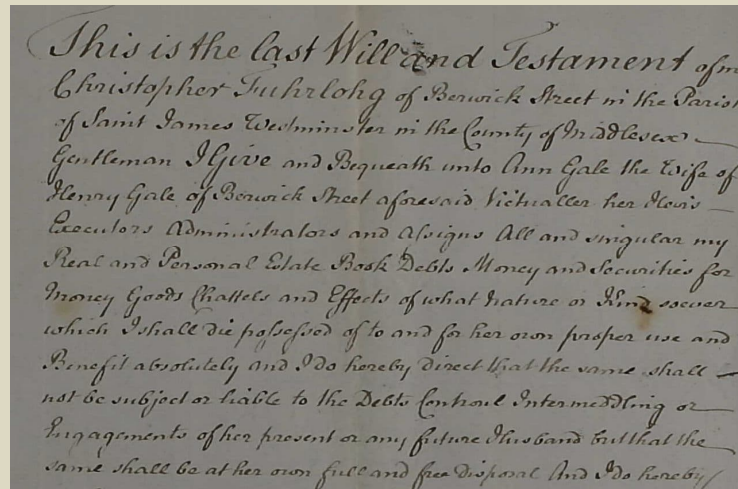 This is the last Will and Testament of m
Christopher Fuhrlohg of Berwick Street in the Parish
of Saint James Westminster in the County of Middlesex
Gentleman I Give and Bequeath unto Ann Gale the Wife of
Henry Gale of Berwick Street aforesaid Victualler her Heirs
Executors Administrators and Assigns All and singular my
Real and Personal Estate Book Debts Money and Securities for
Money Goods Chattels and Effects of what nature or Kind soever
which I shall die possessed of to and for her own proper use and
Benefit absolutely and I do hereby direct that the same shall
not be subject or liable to the Debts Controul Intermeddling or
Engagements of her present or any future Husband but that the
same shall be at her own full and free disposal And I do hereby